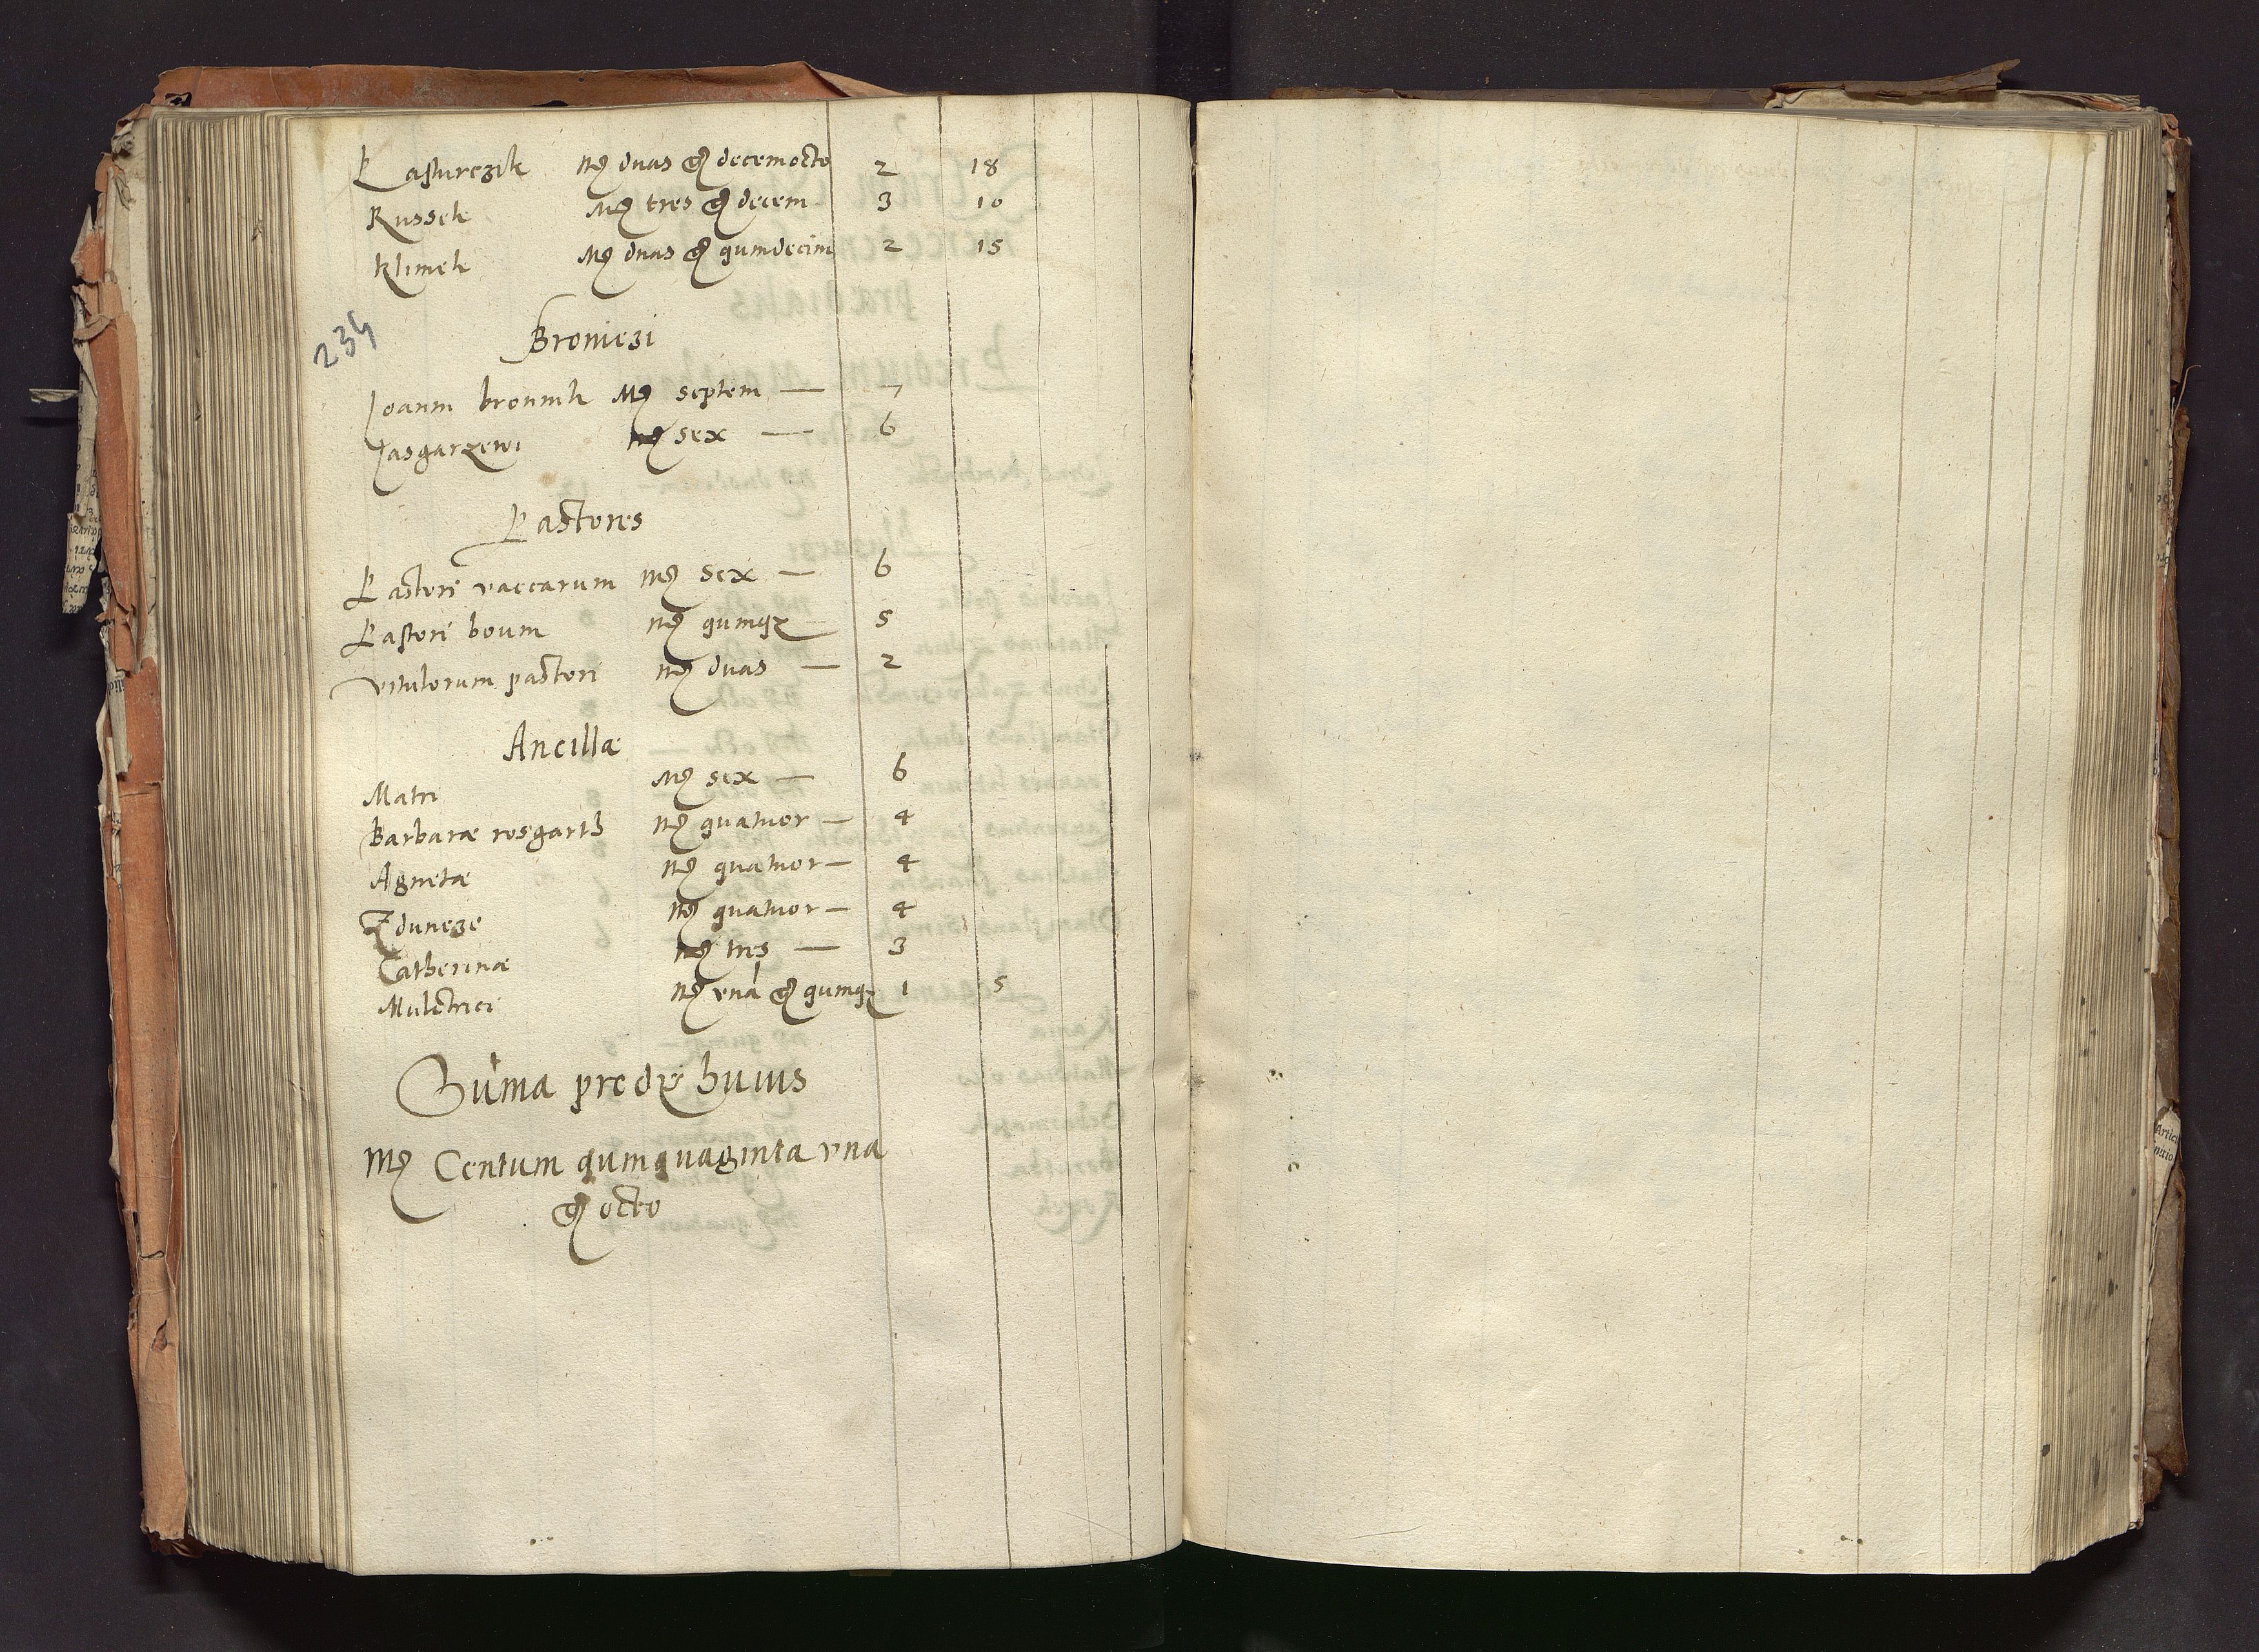 Pasturczik mꝛ duas gꝛ decemocto 2 18
Russek mꝛ tres gꝛ decem 3 10
Klimek mꝛ duas gꝛ quindecim 2 15
234
Broniczi
Joanni bronnik mꝛ septem — 7
Jasgarzewi mꝛ sex — 6
Pastores
Pastori vaccarum mꝛ sex — 6
Pastori boum mꝛ quinqꝫ 5
vitulorum pastori mꝛ duas — 2
Ancillæ
Matri mꝛ sex — 6
Barbaræ rosgarth mꝛ quatuor — 4
Agnetæ mꝛ quatuor — 4
Zduncze mꝛ quatuor — 4
Catherinæ mꝛ tres — 3
Mulctrici mꝛ vna gꝛ quinqꝫ 1 5
Sum̄a predii huius
mꝛ Centum quinquaginta vna
gꝛ octo